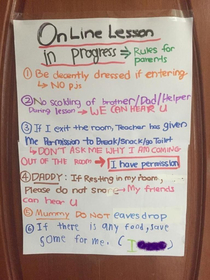 OnLine Lesson
in progress → Rules for
parents
① Be decently dressed if entering.
→ NO PJs
② No scolding of brother/Dad/Helper
During lesson → WE CAN HEAR U
③ If I exit the room, Teacher has given
me Permission to Break/snack/go Toilet
→ DON'T ASK ME WHY I AM COMING
OUT OF THE ROOM → I have permission
④ DADDY: If Resting in my room,
Please do not snore → My friends
can hear U
⑤ Mummy DO NOT eavesdrop
⑥ If there is any food, save
some for me. (I